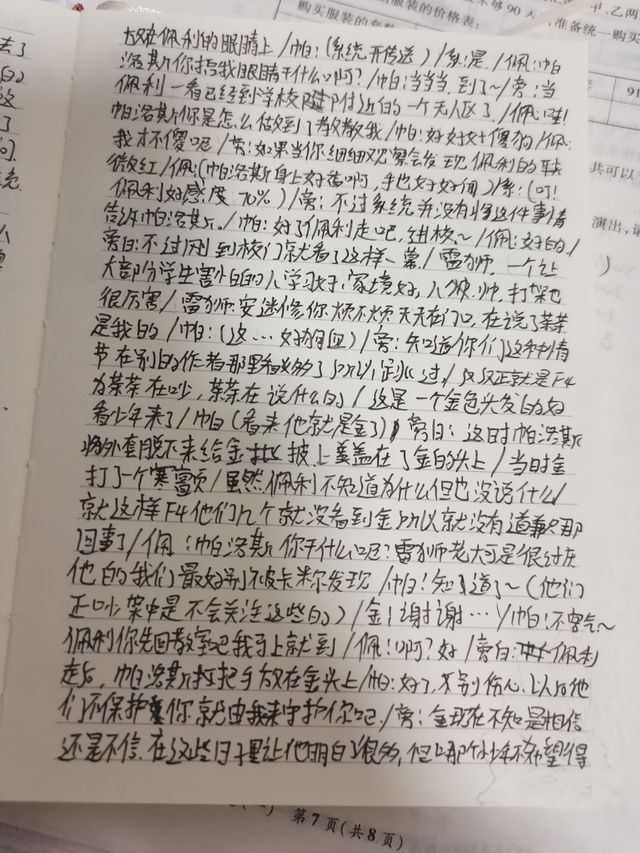 购买服装的套数
服装的价格表:
够90人
准备统一购买
甲,乙两
91
共可以
演出,请
)
去了
放在佩利的眼睛上/帕:(系统开传送)/系:是/佩:帕
洛斯你捂我眼睛干什么啊?/帕:当当当,到了~/旁:当
佩利一看已经到学校附近的一个无人区了/佩:哇!
帕洛斯你是怎么做到了教教我/帕:好好好傻狗/佩:
我才不傻呢/旁:如果当你细细观察会发现佩利的耳朵
微红/佩:(帕洛斯身上好香啊,手也好好闻)/系:(叮!
佩利好感度70%)/旁:不过系统并没有将这件事情
告诉帕洛斯。/帕:好了佩利走吧,进校~/佩:好的/
旁白:不过刚到校门就看了这样一幕/雷狮,一个让
大部分学生害怕的人学习好,家境好,人帅,打架也
很厉害/雷狮:安迷修你烦不烦天天在门口,在说了茶茶
是我的/帕:(这…好狗血)/旁:知道你们这种剧情
节在别的作者那里看多了所以跳过/反正就是F4
为茶茶在吵,茶茶在说什么的/这是一个金色头发的
看少年来了/帕(看来他就是金了)旁白:这时帕洛斯
将外套脱下来给金披上盖在了金的头上/当时金
打了一个寒颤/虽然佩利不知道为什么但也没说什么/
就这样F4他们几个就没看到金所以就没有道歉那
回事了/佩:帕洛斯你干什么呢?雷狮老大可是很讨厌
他的我们最好别被卡米尔发现/帕!知道了~(他们
正吵架中是不会关注这些的)/金:谢谢…/帕:不客气~
佩利你先回教室吧我马上就到/佩:啊?好/旁白:佩利
走后,帕洛斯把手放在金头上/帕:好了,不别伤心,以后他
们不保护你就由我来守护你吧/旁:金现在不知是相信
还是不信,在这些日子里让他明白了很多,但那个少年不希望得
第7页(共8页)